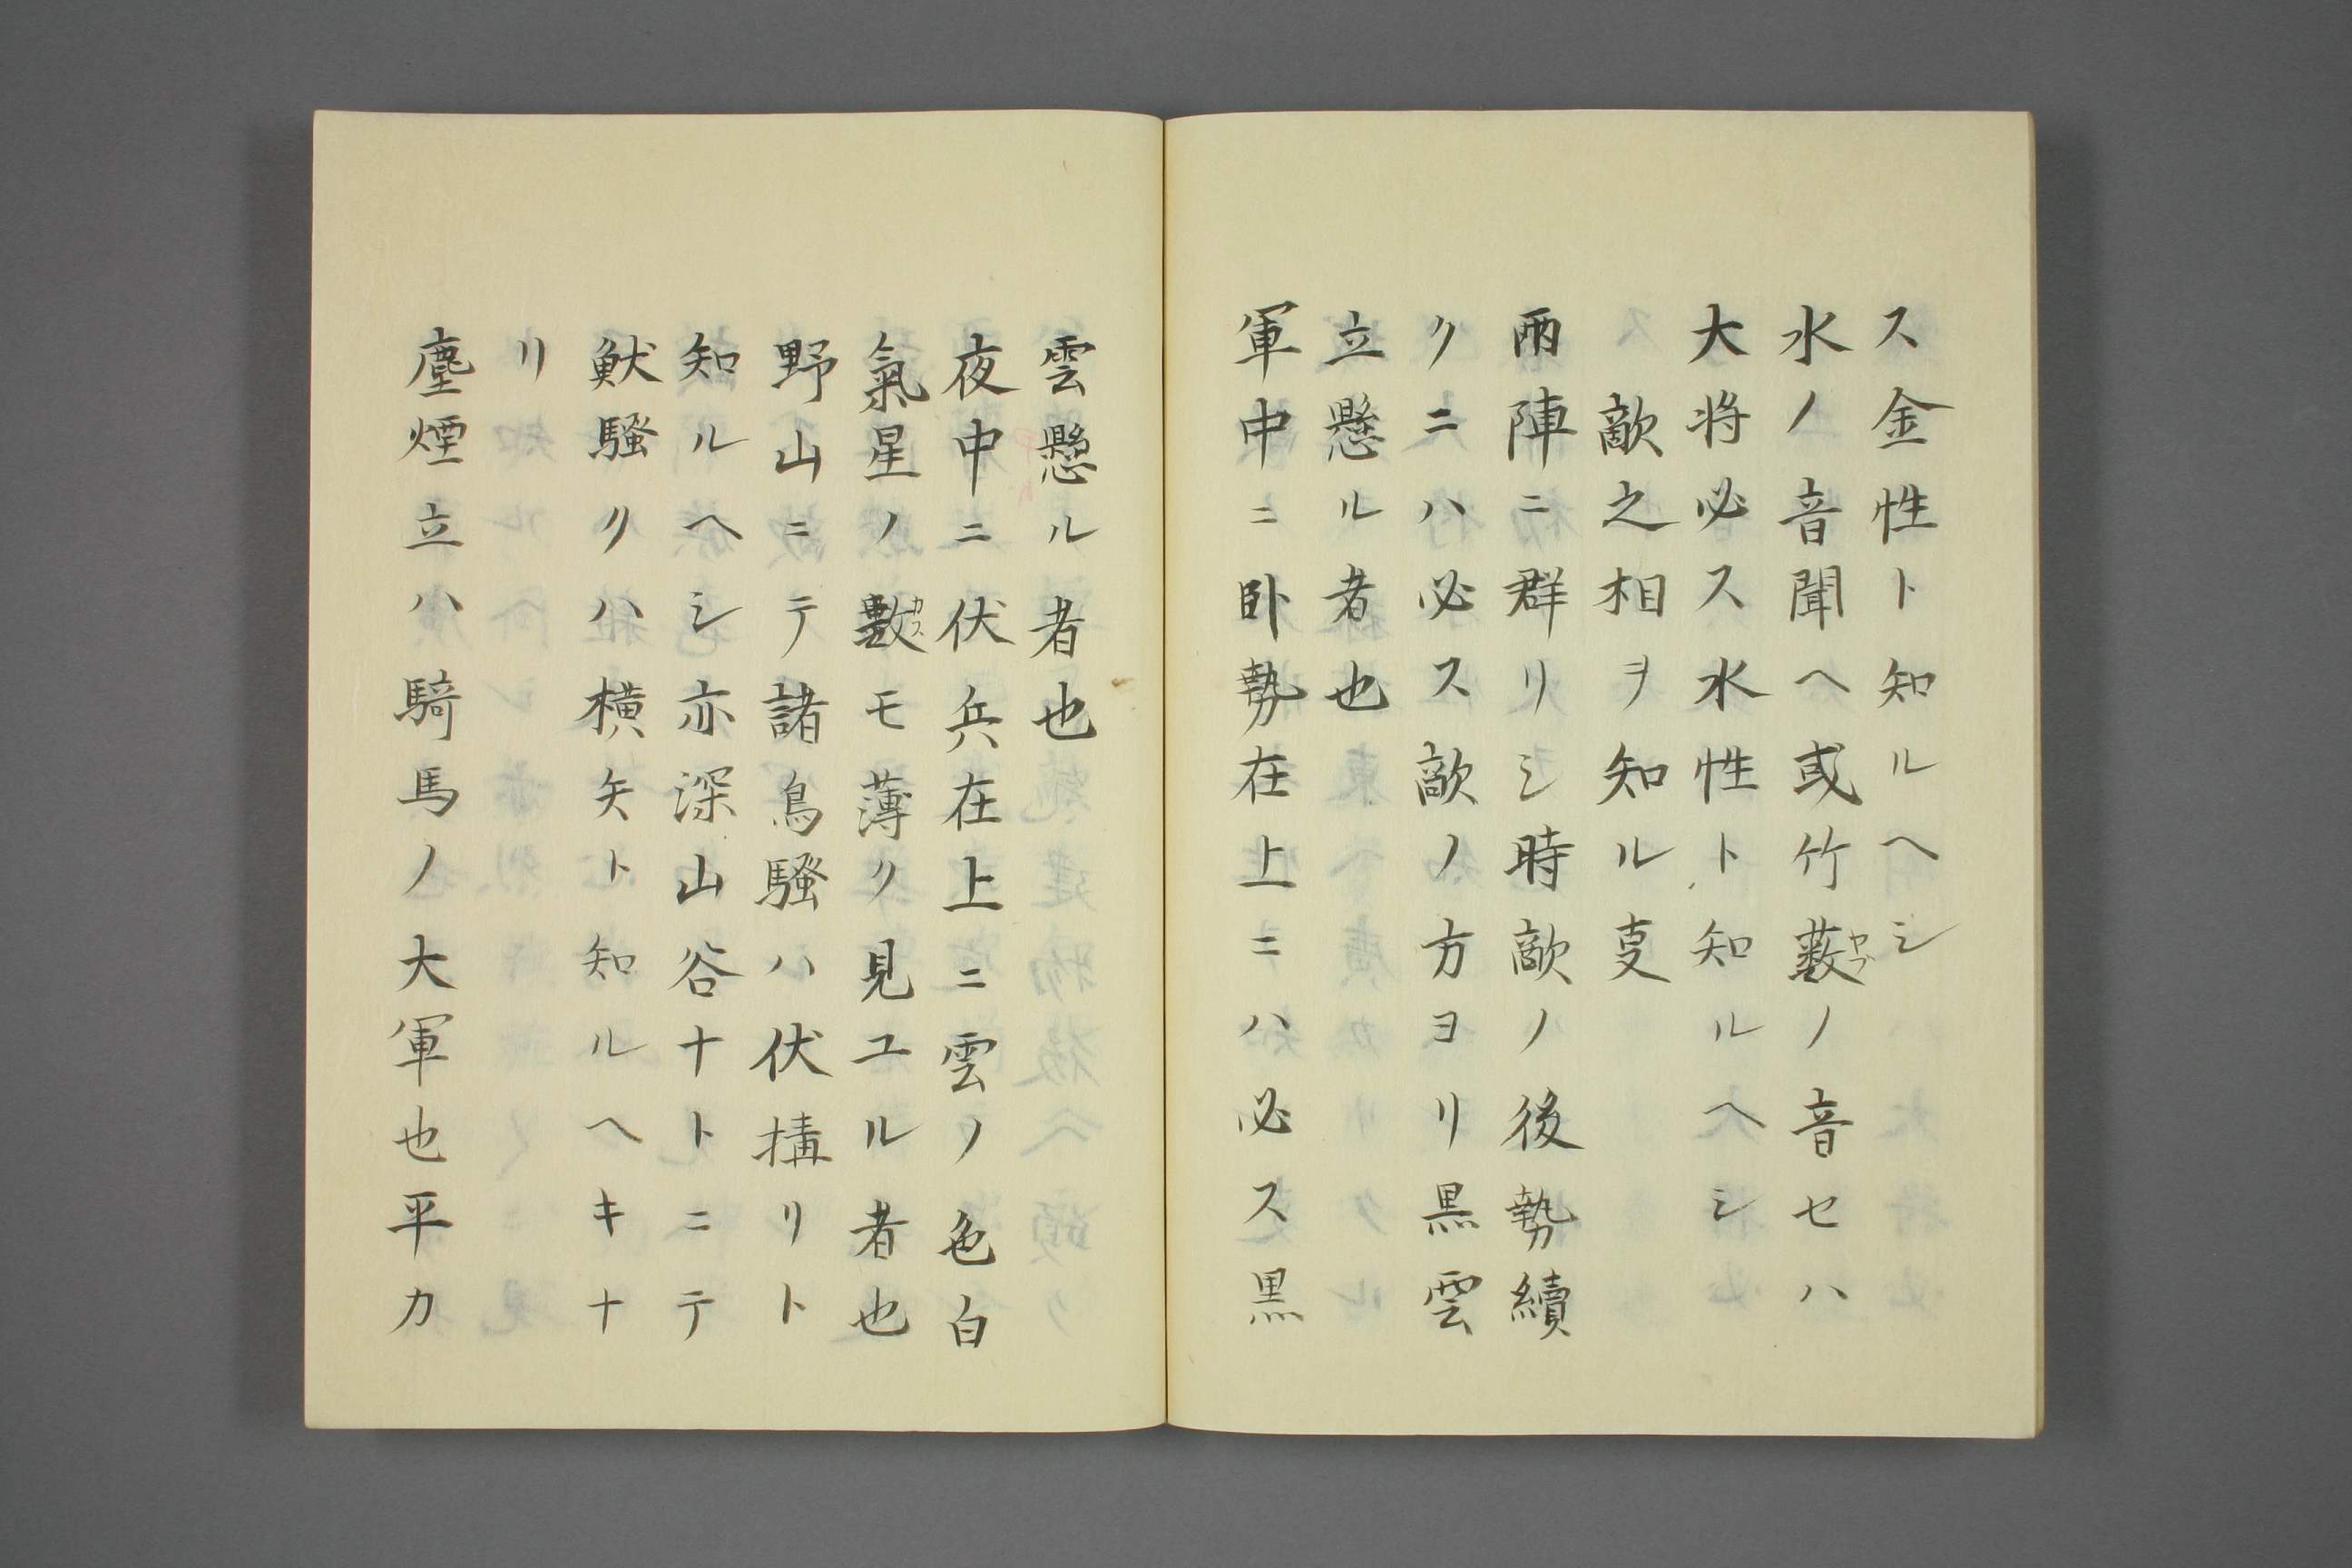 ス金性ト知ルヘシ
水ノ音聞ヘ或竹藪ヤブノ音セハ
大将必ス水性ト知ルヘシ
敵之相ヲ知ル㕝
兩陣ニ群リシ時敵ノ後勢續
クニハ必ス敵ノ方ヨリ黒雲
立懸ル者也
軍中ニ卧勢在上ニハ必ス黒
雲懸ル者也
夜中ニ伏兵在上ニ雲ノ色白
氣星ノ數カスモ薄ク見ユル者也
野山ニテ諸鳥騒ハ伏搆リト
知ルヘシ亦深山谷ナトニテ
猷騒クハ横矢ト知ルヘキナ
リ
塵煙立ハ騎馬ノ大軍也平カ